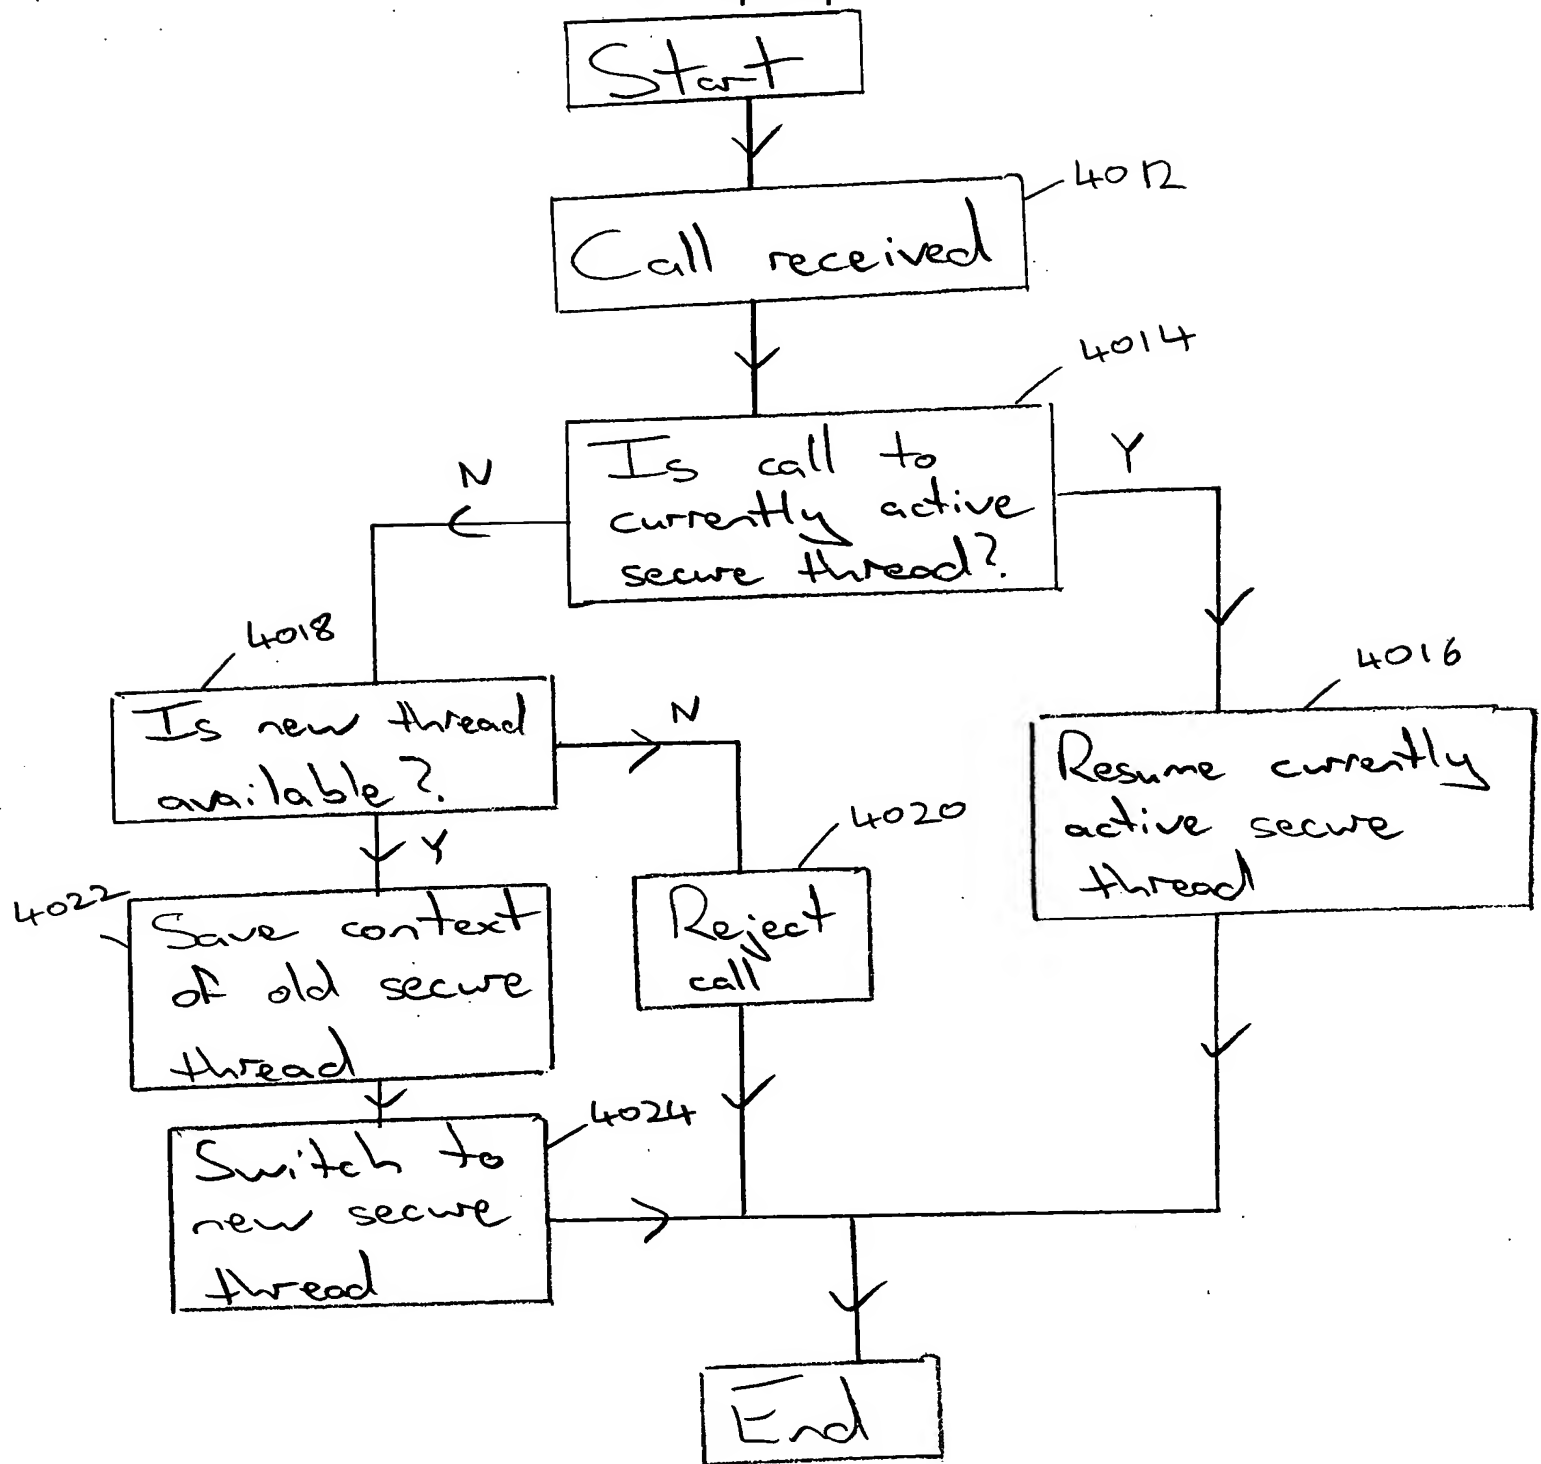 Start
4012
Call received
4014
Is call to
currently active
secure thread?
N
Y
4018
Is new thread
available?
N
4016
Resume currently
active secure
thread
Y
4020
Reject
call
4022
Save context
of old secure
thread
4024
Switch to
new secure
thread
End